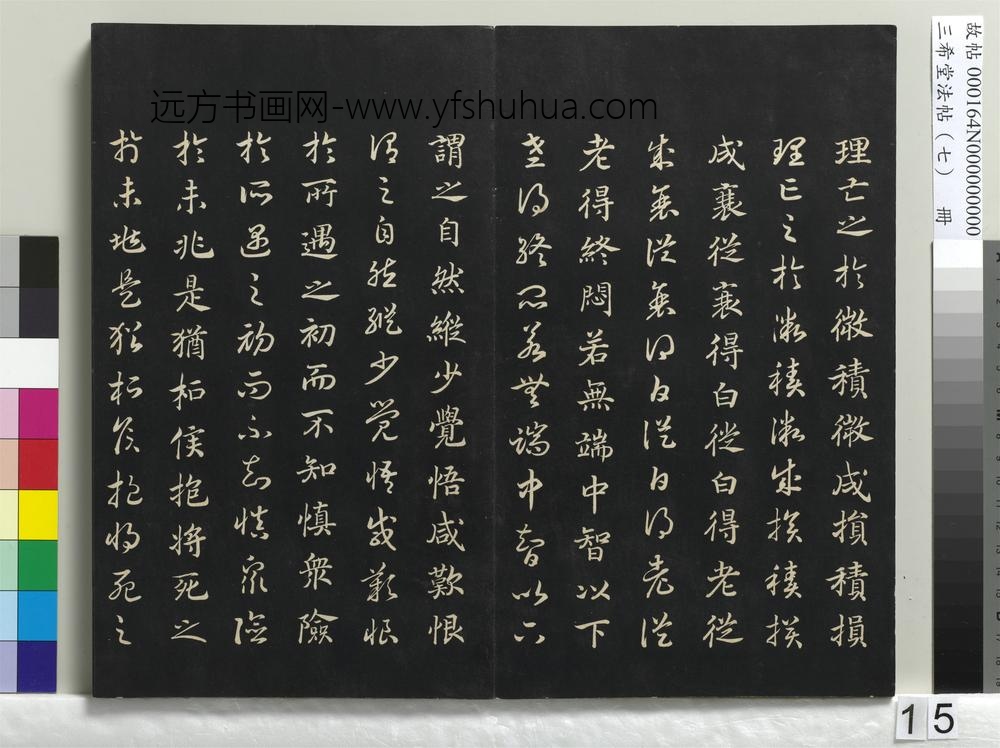 理亡之於微積微成損積損
理亡之於微積微成損積損
成衰從衰得白從白得老從
成衰從衰得白從白得老從
老得終悶若無端中智以下
老得終悶若無端中智以下
謂之自然縱少覺悟咸歎恨
謂之自然縱少覺悟咸歎恨
於所遇之初而不知慎衆險
於所遇之初而不知慎衆險
於未兆是猶栢侯抱將死之
於未兆是猶栢侯抱將死之
远方书画网-www.yfshuhua.com
故帖 000164N000000000
三希堂法帖（七） 冊
15